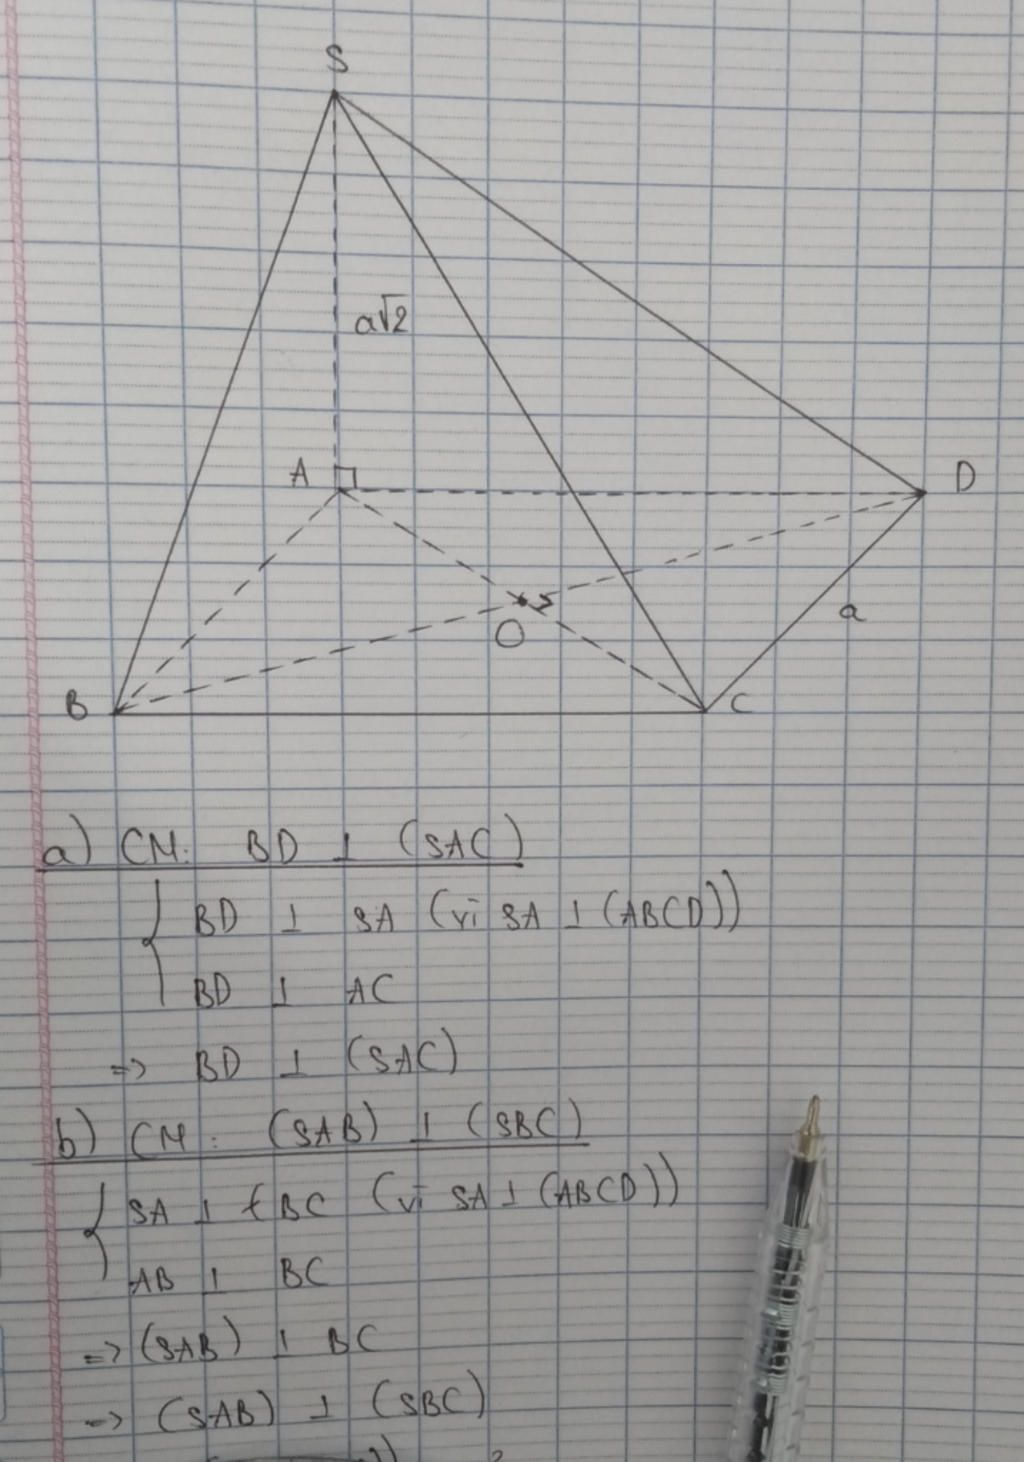 S
a√2
A
D
O
a
B
C
a) CM: BD ⊥ (SAC)
BD ⊥ SA (vì SA ⊥ (ABCD))
BD ⊥ AC
=> BD ⊥ (SAC)
b) CM: (SAB) ⊥ (SBC)
SA ⊥ BC (vì SA ⊥ (ABCD))
AB ⊥ BC
=> (SAB) ⊥ BC
=> (SAB) ⊥ (SBC)